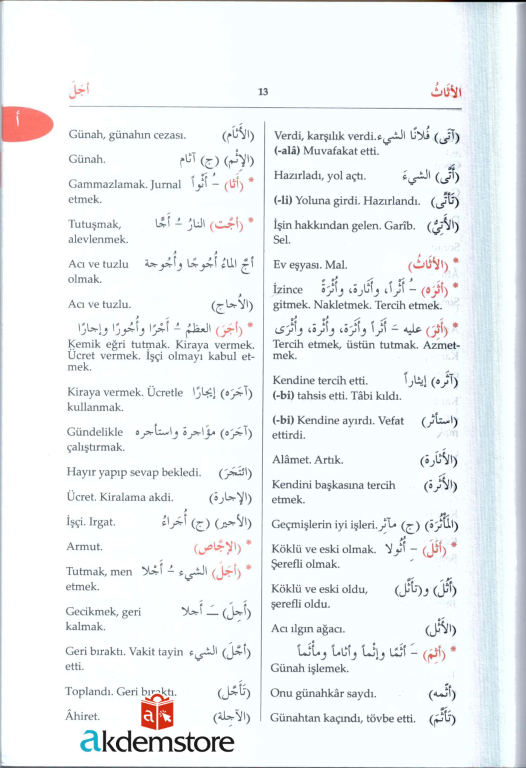 الأَثَاثُ 13 أَجَلَ
أ
(آتَى) فُلَانًا الشيءَ Verdi, karşılık verdi.
(-alâ) Muvafakat etti.
(أَتَّى) الشيءَ Hazırladı, yol açtı.
(تَأَتَّى) (-li) Yoluna girdi. Hazırlandı.
(الأَتِيُّ) İşin hakkından gelen. Garîb.
Sel.
* (الأَثَاثُ) Ev eşyası. Mal.
* (أَثَرَه) – أَثْراً، وأَثَارة، وأُثْرَةً İzince
gitmek. Nakletmek. Tercih etmek.
* (أَثِرَ) عليه – أَثَراً وأَثَرَة، وأُثْرة، وأُثْرَى
Tercih etmek, üstün tutmak. Azmet-
mek.
(آثَره) إِيثاراً Kendine tercih etti.
(-bi) tahsis etti. Tâbi kıldı.
(استأثر) (-bi) Kendine ayırdı. Vefat
ettirdi.
(الأَثَارة) Alâmet. Artık.
(الأَثَرة) Kendini başkasına tercih
etmek.
(المَأْثُرَة) (ج) مآثر Geçmişlerin iyi işleri.
* (أَثَلَ) – أُثُولا Köklü ve eski olmak.
Şerefli olmak.
(أَثَّلَ) و(تَأَثَّلَ) Köklü ve eski oldu,
şerefli oldu.
(الأَثْل) Acı ılgın ağacı.
* (أَثِمَ) – أَثَمًا وإِثْماً وأَثاماً ومَأْثَماً
Günah işlemek.
(أَثَّمه) Onu günahkâr saydı.
(تَأَثَّمَ) Günahtan kaçındı, tövbe etti.
(الأَثَام) Günah, günahın cezası.
(الإِثْم) (ج) آثام Günah.
* (أَثَا) – أَثْواً Gammazlamak. Jurnal
etmek.
* (أَجَّت) النارُ – أَجًّا Tutuşmak,
alevlenmek.
أَجّ الماءُ أُجُوجًا وأُجُوجة Acı ve tuzlu
olmak.
(الأُجاج) Acı ve tuzlu.
* (أَجَرَ) العظمُ – أَجْرًا وأُجورًا وإجارًا
Kemik eğri tutmak. Kiraya vermek.
Ücret vermek. İşçi olmayı kabul et-
mek.
(آجَره) إيجارًا Kiraya vermek. Ücretle
kullanmak.
(آجَرَه) مؤاجرة واستأجره Gündelikle
çalıştırmak.
(ائتَجَرَ) Hayır yapıp sevap bekledi.
(الإجارة) Ücret. Kiralama akdi.
(الأَجير) (ج) أُجَراءُ İşçi. Irgat.
* (الإجَّاص) Armut.
* (أَجَلَ) الشيءَ – أَجْلا Tutmak, men
etmek.
(أَجِلَ) – أَجَلا Gecikmek, geri
kalmak.
(أَجَّلَ) الشيءَ Geri bıraktı. Vakit tayin
etti.
(تَأَجَّل) Toplandı. Geri bıraktı.
(الآجِلة) Âhiret.
a
akdemstore